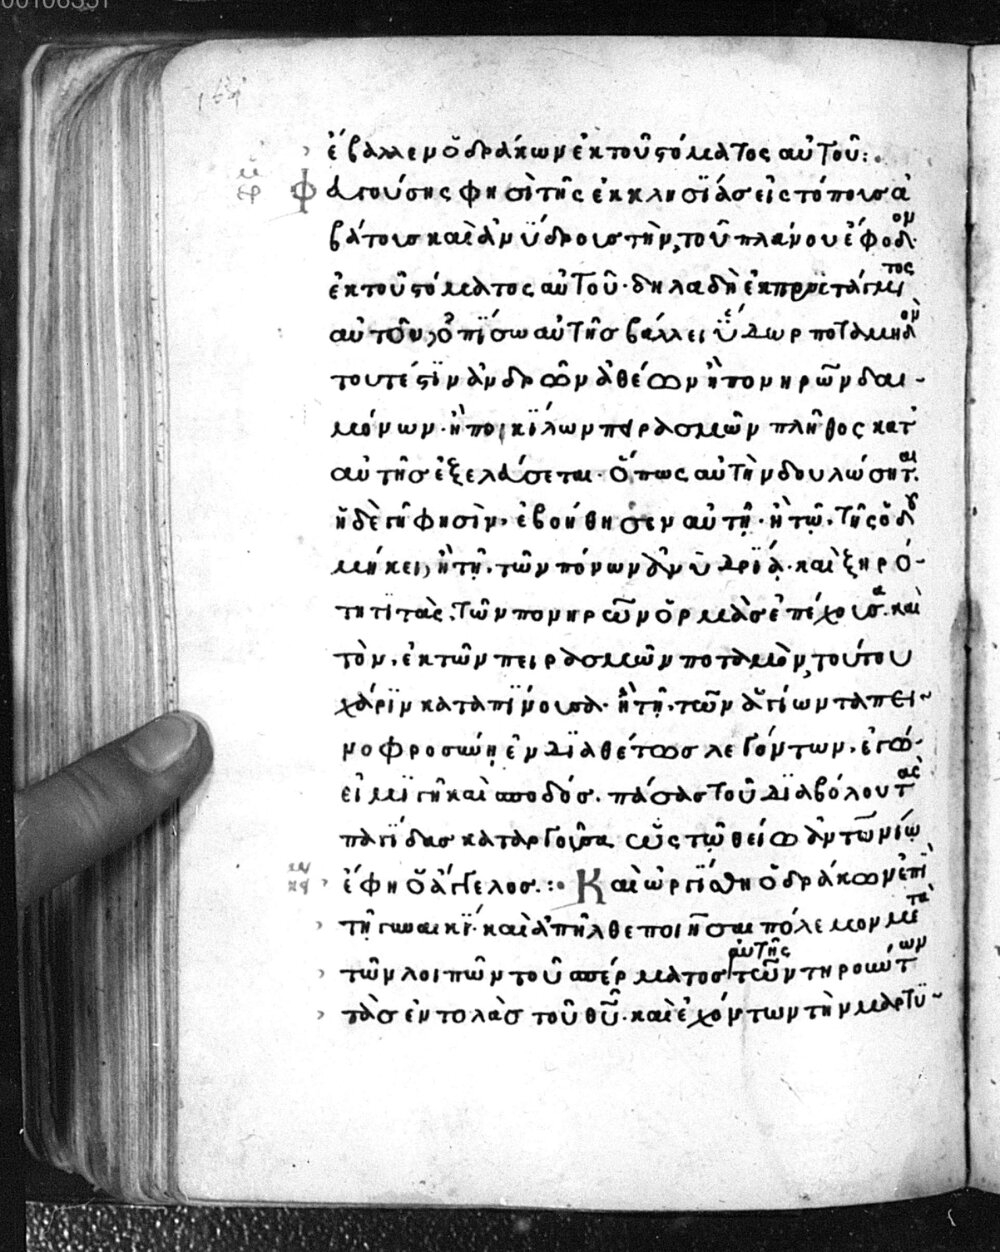 ἔβαλλεν ὁ δράκων ἐκ τοῦ στόματος αὐτοῦ:.
Φαγούσης φησὶ τῆς ἐκκλησίας εἰς τόπους ἀ
βάτους καὶ ἀνύδρους τὴν, τοῦ πλάνου ἔφοδον·
ἐκ τοῦ στόματος αὐτοῦ· δηλαδὴ ἐκ προστάγματος
αὐτοῦ, ὀπίσω αὐτῆς βάλλει ὕδωρ ποταμηδὸν
τουτέστιν ἀνδρῶν ἀθέων ἢ πονηρῶν δαι-
μόνων· ἢ ποικίλων πειρασμῶν πλῆθος κατ
αὐτῆς ἐξελάσεται· ὅπως αὐτὴν δουλώσηται.
ἡ δὲ γῆ φησὶν, ἐβοήθησεν αὐτῇ· ἢ τῷ, τῆς ὁδοῦ
μήκει, ἢ τῇ, τῶν πόνων ἀνυδρίᾳ· καὶ ξηρό-
τητι τὰς, τῶν πονηρῶν ὁρμὰς ἐπέχουσα. καὶ
τὸν, ἐκ τῶν πειρασμῶν ποταμὸν, τούτου
χάριν καταπίνουσα· ἢ τῇ, τῶν ἁγίων ταπει-
νοφροσύνῃ ἐνδιαθέτως λεγόντων, ἐγώ
εἰμι γῆ καὶ σποδός. πάσας τοῦ διαβόλου τὰς
παγίδας καταργοῦσα ὡς τῷ θείῳ ἀντωνίῳ
ἔφη ὁ ἄγγελος.:. Καὶ ὠργίσθη ὁ δράκων ἐπὶ
τῇ γυναικί· καὶ ἀπῆλθε ποιῆσαι πόλεμον μετὰ
τῶν λοιπῶν τοῦ σπέρματος αὐτῆς τῶν τηρούντων
τὰς ἐντολὰς τοῦ θῦ· καὶ ἐχόντων τὴν μαρτυ-